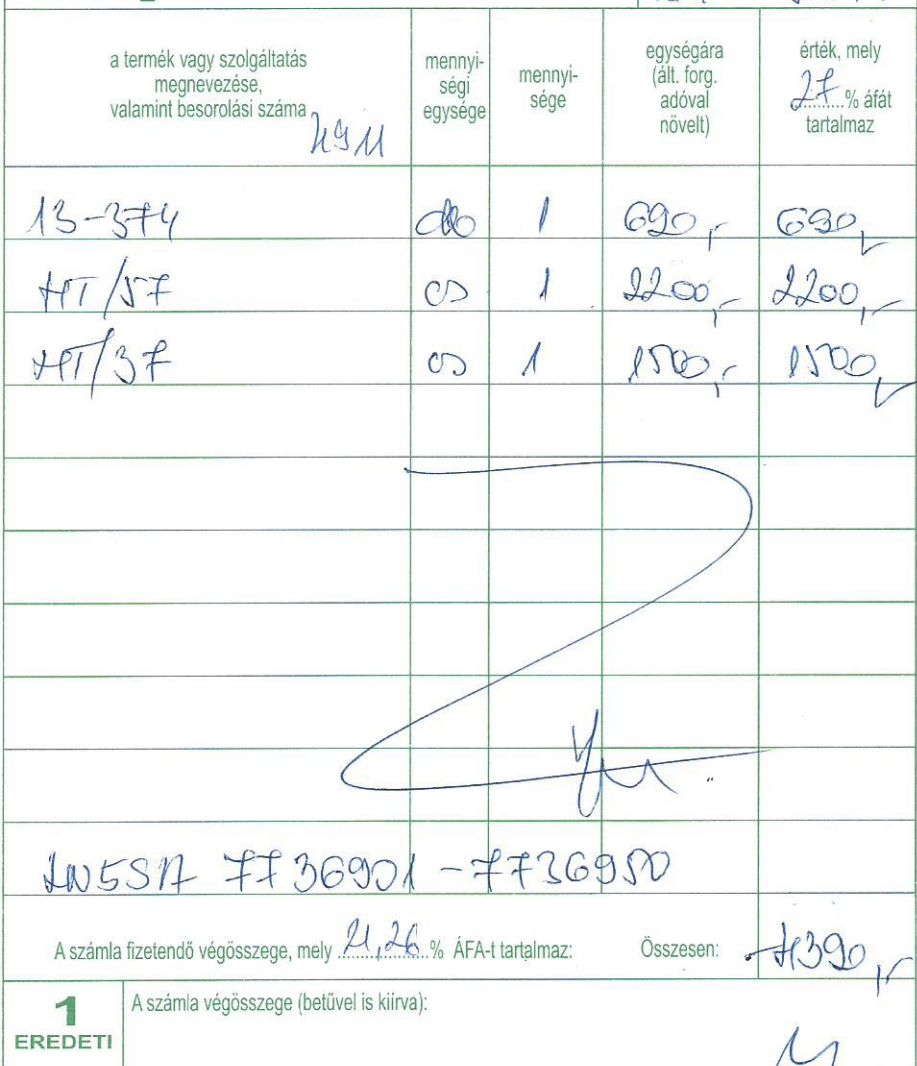 a termék vagy szolgáltatás megnevezése, valamint besorolási száma 4911
mennyi-ségi egysége
mennyi-sége
egységára (ált. forg. adóval növelt)
érték, mely 27 % áfát tartalmaz
13-374 db 1 690,- 690,-
HT/57 cs 1 2200,- 2200,-
HT/37 cs 1 1500,- 1500,-
7736901 - 7736950
A számla fizetendő végösszege, mely 21,26 % ÁFA-t tartalmaz: Összesen: 4390,-
1 EREDETI
A számla végösszege (betűvel is kiírva):